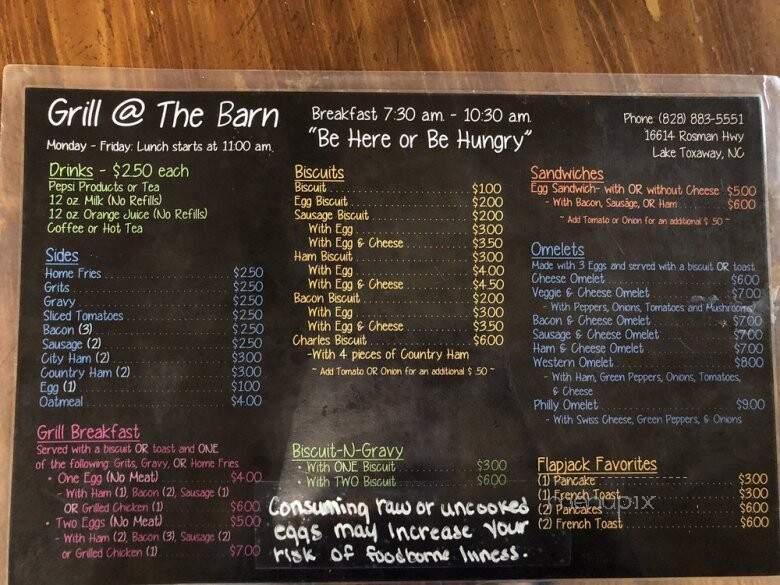 Grill @ The Barn
Monday - Friday: Lunch starts at 11:00 am.
Breakfast 7:30 am. - 10:30 am.
"Be Here or Be Hungry"
Phone: (828) 883-5551
16614 Rosman Hwy
Lake Toxaway, NC
Drinks - $2.50 each
Pepsi Products or Tea
12 oz. Milk (No Refills)
12 oz. Orange Juice (No Refills)
Coffee or Hot Tea
Sides
Home Fries $2.50
Grits $2.50
Gravy $2.50
Sliced Tomatoes $2.50
Bacon (3) $2.50
Sausage (2) $2.50
City Ham (2) $3.00
Country Ham (2) $3.00
Egg (1) $1.00
Oatmeal $4.00
Grill Breakfast
Served with a biscuit OR toast and ONE
of the following: Grits, Gravy, OR Home Fries
• One Egg (No Meat) $4.00
- With Ham (1), Bacon (2), Sausage (1)
OR Grilled Chicken (1) $6.00
• Two Eggs (No Meat) $5.00
- With Ham (2), Bacon (3), Sausage (2)
or Grilled Chicken (1) $7.00
Biscuits
Biscuit $1.00
Egg Biscuit $2.00
Sausage Biscuit $2.00
With Egg $3.00
With Egg & Cheese $3.50
Ham Biscuit $3.00
With Egg $4.00
With Egg & Cheese $4.50
Bacon Biscuit $2.00
With Egg $3.00
With Egg & Cheese $3.50
Charles Biscuit $6.00
-With 4 pieces of Country Ham
~ Add Tomato OR Onion for an additional $ .50 ~
Biscuit-N-Gravy
• With ONE Biscuit $3.00
• With TWO Biscuit $6.00
Consuming raw or uncooked
eggs may increase your
risk of foodborne Inness.
Sandwiches
Egg Sandwich- with OR without Cheese $5.00
- With Bacon, Sausage, OR Ham $6.00
~ Add Tomato or Onion for an additional $ .50 ~
Omelets
Made with 3 Eggs and served with a biscuit OR toast
Cheese Omelet $6.00
Veggie & Cheese Omelet $7.00
- With Peppers, Onions, Tomatoes and Mushrooms
Bacon & Cheese Omelet $7.00
Sausage & Cheese Omelet $7.00
Ham & Cheese Omelet $7.00
Western Omelet $8.00
- With Ham, Green Peppers, Onions, Tomatoes,
& Cheese
Philly Omelet $9.00
- With Swiss Cheese, Green Peppers, & Onions
Flapjack Favorites
(1) Pancake $3.00
(1) French Toast $3.00
(2) Pancakes $6.00
(2) French Toast $6.00
menupix